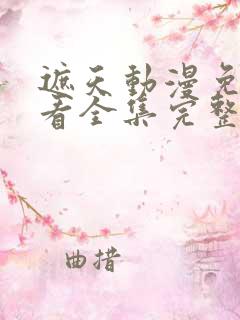 遮天動漫免
看全集完整
曲措